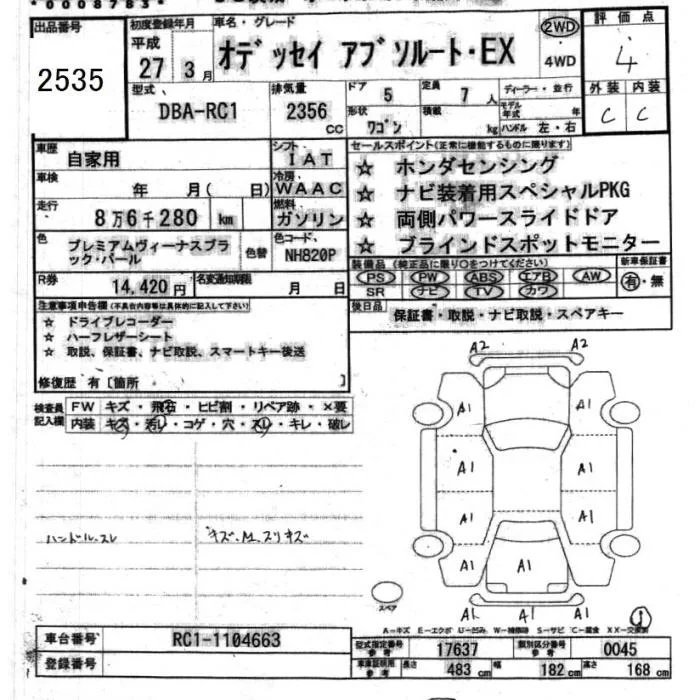 *0008783*
出品番号
2535
初度登録年月
平成
27年3月
車名・グレード
オデッセイ アブソルート・EX
2WD
4WD
評価点
4
外装 内装
C C
型式
DBA-RC1
排気量
2356
cc
ドア
5
定員
7人
形状
ワゴン
積載
kg
ディーラー・並行
モデル年式 年
ハンドル 左・右
車歴
自家用
シフト
IAT
車検
年 月( 日)
冷房
WAAC
走行
8万6千280 km
燃料
ガソリン
色
プレミアムヴィーナスブラック・パール
色替
色コード
NH820P
R券
14,420円
名変通知期限
月 日
セールスポイント(正常に機能するものに限ります)
☆ ホンダセンシング
☆ ナビ装着用スペシャルPKG
☆ 両側パワースライドドア
☆ ブラインドスポットモニター
装備品(純正品に限り○をつけてください)
PS PW ABS エアB AW
SR ナビ TV カワ
新車保証書
有・無
後日品
保証書・取説・ナビ取説・スペアキー
注意事項申告欄(不具合内容等は具体的に記入して下さい)
☆ ドライブレコーダー
☆ ハーフレザーシート
☆ 取説、保証書、ナビ取説、スマートキー後送
修復歴 有[箇所 ]
検査員記入欄
FW キズ・飛石・ヒビ割・リペア跡・×要
内装 キズ・汚レ・コゲ・穴・スレ・キレ・破レ
ハンドルスレ
A2 A2
A1 A1
A1 A1
A1 A1
A1 A1 A1
A1 A1 A1
スペア
A-キズ E-エクボ U-凹み W-補修跡 S-サビ C-腐食 XX-交換済
車台番号
RC1-1104663
登録番号
型式指定番号
参考
17637
類別区分番号
参考
0045
車庫証明用
参考
長さ 483cm 幅 182cm 高さ 168cm